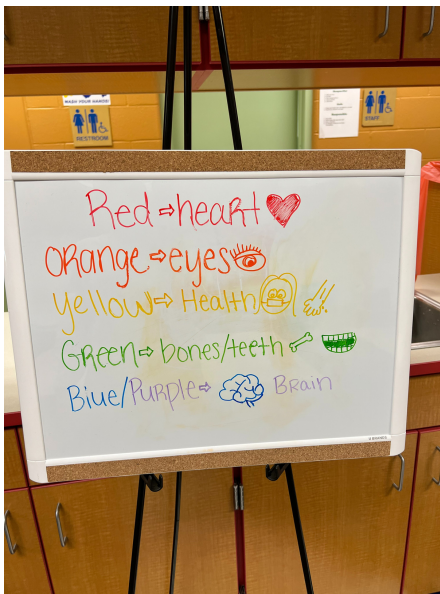 WASH YOUR HANDS!
RESTROOM
STAFF
Red⇨heart
Orange⇨eyes
Yellow⇨Health
Green⇨bones/teeth
Blue/Purple⇨ Brain